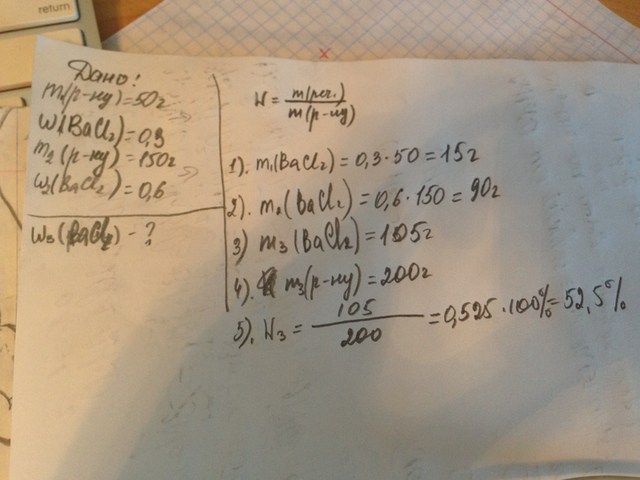 return
Дано:
m1(р-ну)=50г
W1(BaCl2)=0,3
m2(р-ну)=150г
W2(BaCl2)=0,6
W3(BaCl2)-?
W = m(реч.) / m(р-ну)
1). m1(BaCl2)=0,3·50=15г
2). m2(BaCl2)=0,6·150=90г
3) m3(BaCl2)=105г
4). m3(р-ну)=200г
5). W3 = 105 / 200 =0,525·100%=52,5%